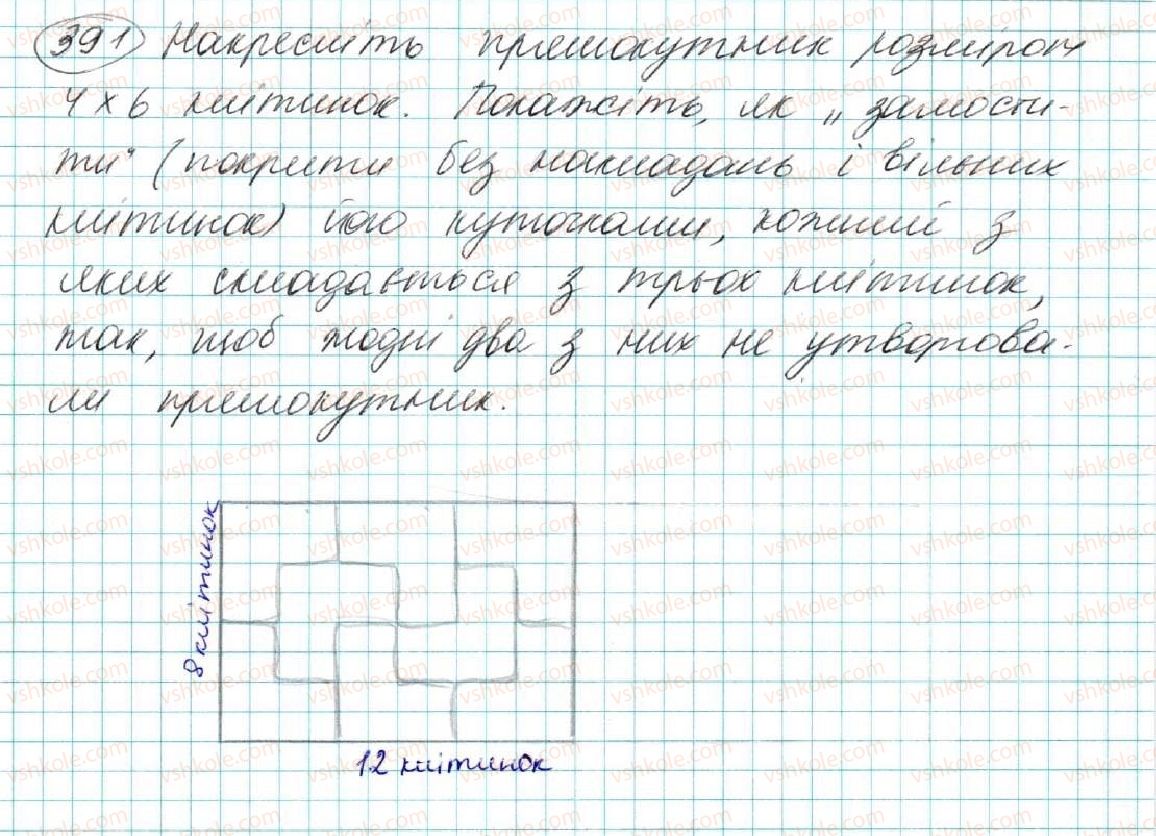 391 Накресліть прямокутник розміром
4 х 6 клітинок. Покажіть, як „замости-
ти" (покрити без накладань і вільних
клітинок) його куточками, кожний з
яких складається з трьох клітинок,
так, щоб жодні два з них не утворюва-
ли прямокутник.
8 клітинок
12 клітинок
vshkole.com